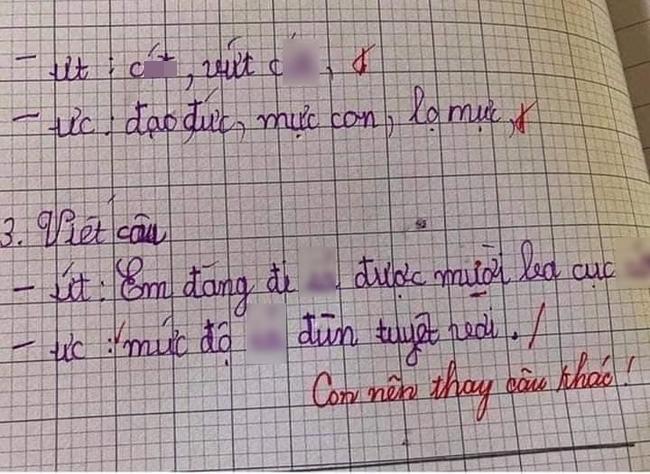 - ưt: c t, vứt c ,
- ức: đạo đức, mực con, lọ mực,
3. Viết câu
- ứt: Em đang đi được mười lea cục
- ưc: mức độ đùn tuyệt vời.
Con nên thay câu khác!